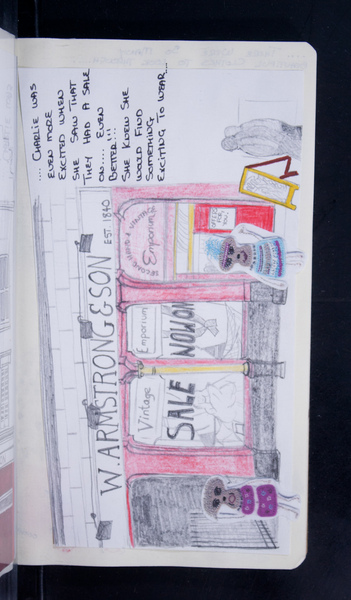 .... CHARLIE WAS
EVEN MORE
EXCITED WHEN
SHE SAW THAT
THEY HAD A SALE
ON.... EVEN
BETTER!!!
SHE KNEW SHE
WOULD FIND
SOMETHING
EXCITING TO WEAR....
W. ARMSTRONG & SON
EST. 1840
Vintage
SALE
Emporium
NOW ON
Emporium
OFFER
FOR
YOU